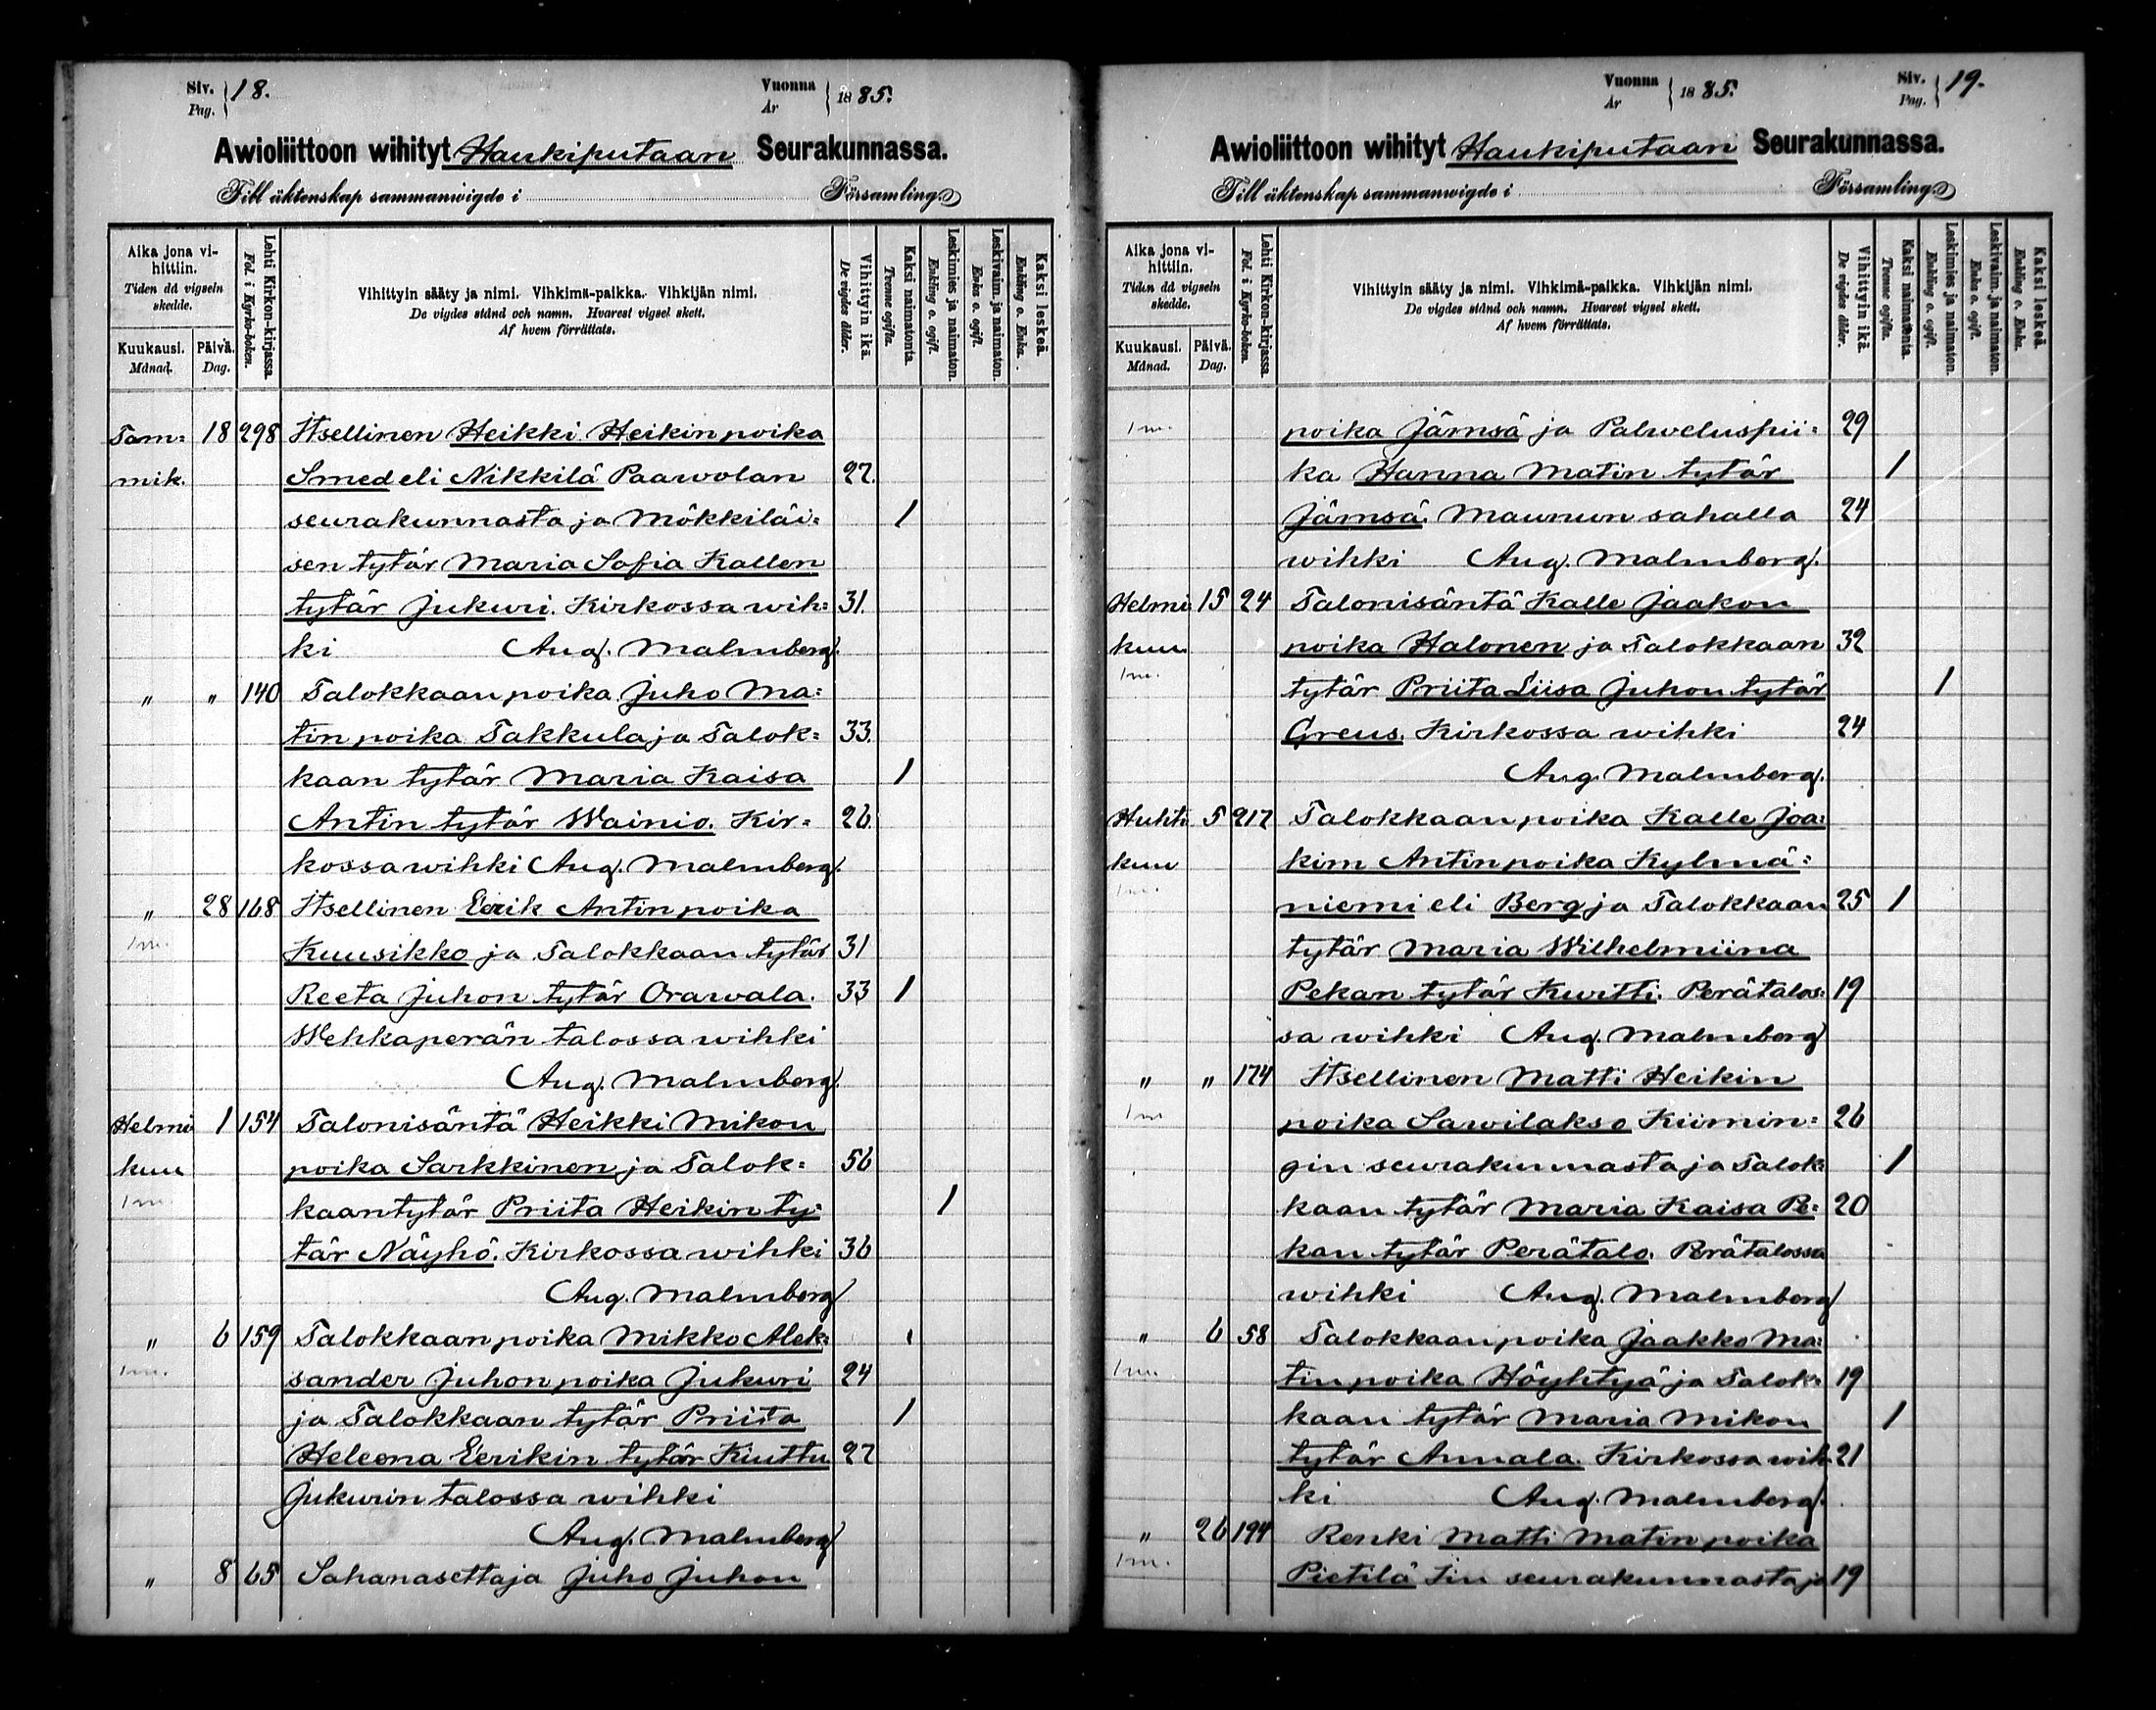 Siv. Pag. } 18.
Vuonna År } 1885.
Awioliittoon wihityt Haukiputaan Seurakunnassa.
Till äktenskap sammanwigde i Församling.
Aika jona vihittiin. Tiden då vigseln skedde.
Kuukausi. Månad.
Päivä. Dag.
Lehti Kirkon-kirjassa. Fol. i Kyrko-boken.
Vihittyin sääty ja nimi. Vihkimä-paikka. Vihkijän nimi.
De vigdes stånd och namn. Hvarest vigsel skett.
Af hvem förrättats.
Vihittyin ikä. De vigdes ålder.
Kaksi naimatonta. Tvenne ogifta.
Leskimies ja naimaton. Enkling o. ogift.
Leskivaim. ja naimaton. Enka o. ogift.
Kaksi leskeä. Enkling o. Enka.
Tam= 18 298 Itsellinen Heikki Heikin poika
mik. Smed eli Nikkilä Paawolan 27.
seurakunnasta ja Mökkiläi= 1
sen tytär Maria Sofia Kallen
tytär Jukuri. Kirkossa wih= 31.
ki Aug. Malmberg.
" " 140 Talokkaan poika Juho Ma=
tin poika Takkula ja Talok= 33.
kaan tytär Maria Kaisa 1
Antin tytär Wainio. Kir= 26.
kossa wihki Aug. Malmberg.
" 28 168 Itsellinen Eerik Antin poika
Kuusikko ja Talokkaan tytär 31
Reeta Juhon tytär Orawala. 33 1
Wehkaperän talossa wihki
Aug. Malmberg.
Helmi 1 154 Talonisäntä Heikki Mikon
kuu poika Sarkkinen ja Talok= 56
kaan tytär Priita Heikin ty= 1
tär Näyhö. Kirkossa wihki 36
Aug. Malmberg
" 6 159 Talokkaan poika Mikko Alek=
sander Juhon poika Jukuri 24
ja Talokkaan tytär Priita 1
Heleena Eerikin tytär Kiuttu 27
Jukurin talossa wihki
Aug. Malmberg
" 8 65 Sahanasettaja Juho Juhon
Vuonna År } 1885.
Siv. Pag. } 19.
Awioliittoon wihityt Haukiputaan Seurakunnassa.
Till äktenskap sammanwigde i Församling.
Aika jona vihittiin. Tiden då vigseln skedde.
Kuukausi. Månad.
Päivä. Dag.
Lehti Kirkon-kirjassa. Fol. i Kyrko-boken.
Vihittyin sääty ja nimi. Vihkimä-paikka. Vihkijän nimi.
De vigdes stånd och namn. Hvarest vigsel skett.
Af hvem förrättats.
Vihittyin ikä. De vigdes ålder.
Kaksi naimatonta. Tvenne ogifta.
Leskimies ja naimaton. Enkling o. ogift.
Leskivaim. ja naimaton. Enka o. ogift.
Kaksi leskeä. Enkling o. Enka.
poika Jämsä ja Palweluspii= 29
ka Hanna Matin tytär 1
Jämsä. Maunun sahalla 24
wihki Aug. Malmberg.
Helmi 15 24 Talonisäntä Kalle Jaakon
kuu poika Halonen ja Talokkaan 32
tytär Priita Liisa Juhon tytär 1
Greus. Kirkossa wihki 24
Aug. Malmberg.
Huhti 5 217 Talokkaan poika Kalle Joa=
kuu kim Antin poika Kylmä=
niemi eli Berg ja Talokkaan 25 1
tytär Maria Wilhelmiina
Pekan tytär Kurtti. Perätalos= 19
sa wihki Aug. Malmberg
" " 174 Itsellinen Matti Heikin
poika Sawilakso Kiimin= 26
gin seurakunnasta ja Talok= 1
kaan tytär Maria Kaisa Pe= 20
kan tytär Perätalo. Perätalossa
wihki Aug. Malmberg
" 6 58 Talokkaan poika Jaakko Ma=
tin poika Höyhtyä ja Talok= 19
kaan tytär Maria Mikon 1
tytär Annala. Kirkossa wih= 21
ki Aug. Malmberg.
" 26 194 Renki Matti Matin poika
Pietilä Iin seurakunnasta ja 19